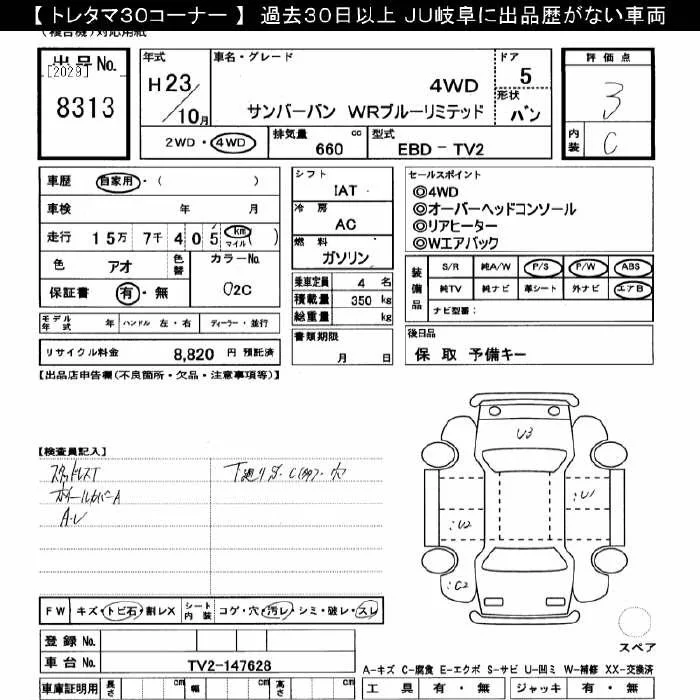 【 トレタマ30コーナー 】 過去30日以上 JU岐阜に出品歴がない車両
(複合機)対応用紙
出品No.
[2029]
8313
年式
H23/10月
車名・グレード
4WD
サンバーバン WRブルーリミテッド
ドア
5
形状
バン
評価点
3
内装
C
2WD・4WD
排気量
660 cc
型式
EBD-TV2
車歴 自家用・( )
車検 年 月
走行 15万 7千 405 km マイル ( )
色 アオ 色替
カラーNo.
02C
保証書 有・無
シフト
IAT
冷房
AC
燃料
ガソリン
乗車定員 4 名
積載量 350 kg
総重量 kg
セールスポイント
◎4WD
◎オーバーヘッドコンソール
◎リアヒーター
◎Wエアバック
装備品
S/R 純A/W P/S P/W ABS
純TV 純ナビ 革シート 外ナビ エアB
ナビ型番:
モデル年式 年 ハンドル 左・右 ディーラー・並行
リサイクル料金 8,820 円 預託済
書類期限
月 日
後日品
保 取 予備キー
【出品店申告欄(不良箇所・欠品・注意事項等)】
【検査員記入】
スタッドレスT
ホイールカバーA
A.U
下廻りS・C(多)・穴
U3
U1
U2
C2
FW キズ・トビ石・割レX
シート内装 コゲ・穴・汚レ・シミ・破レ・スレ
登録 No.
車台 No. TV2-147628
車庫証明用 長さ cm 幅 cm 高さ cm
スペア
A-キズ C-腐食 E-エクボ S-サビ U-凹ミ W-補修 XX-交換済
工具 有・無 ジャッキ 有・無